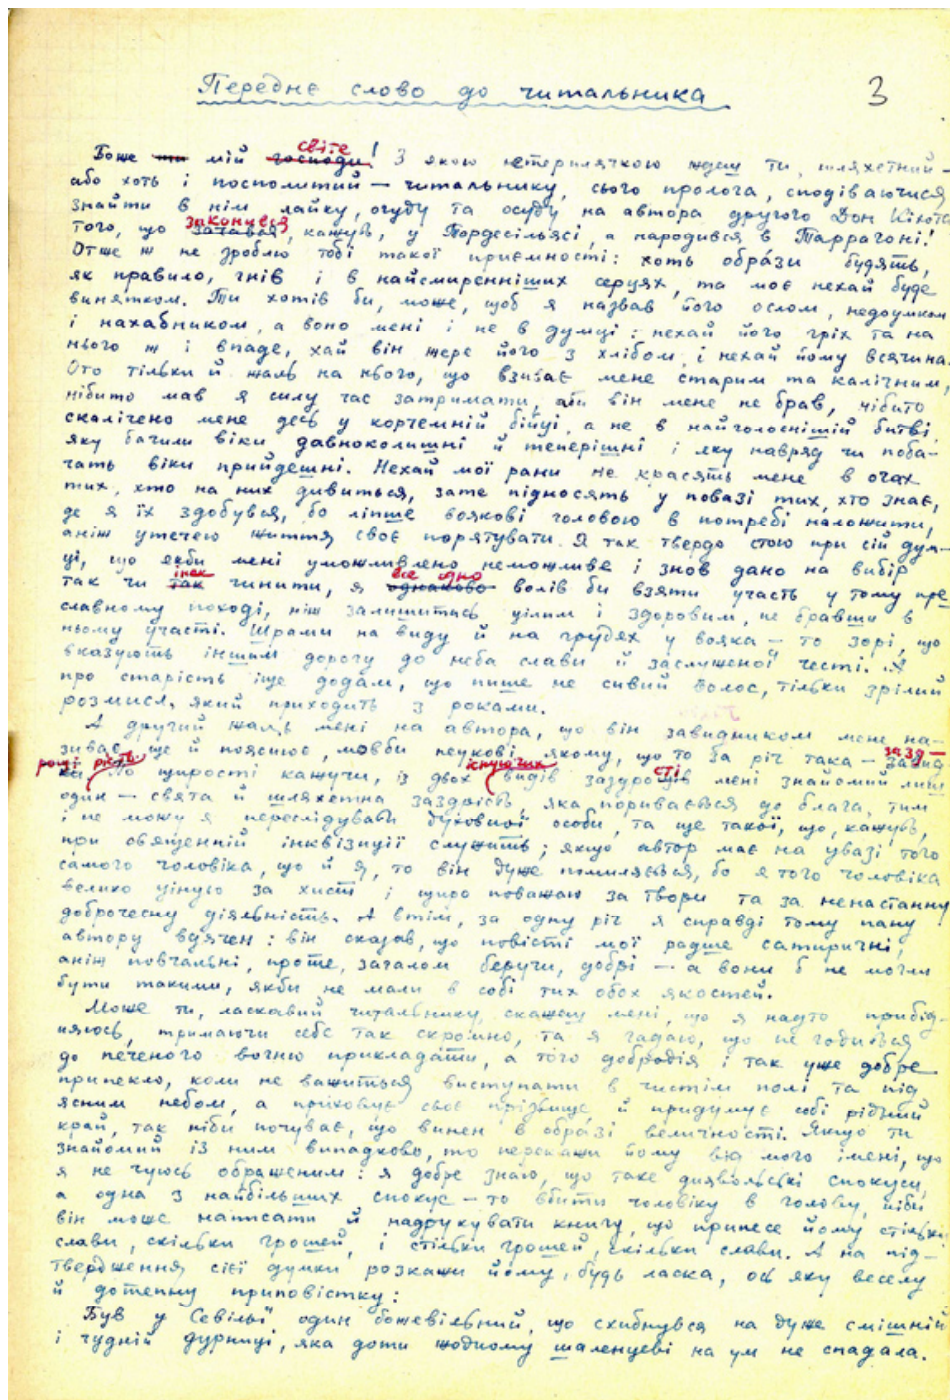 Переднє слово до читальника
3
Боже ~~ти~~ мій ~~господи~~ світе! З якою нетерплячкою ждеш ти, шляхетний –
або хоть і посполитий – читальнику, сього пролога, сподіваючися
знайти в нім лайку, огуду та осуду на автора другого Дон Кіхота,
того, що ~~зачався~~ законувся, кажуть, у Тордесільясі, а народився в Таррагоні!
Отже ж не зроблю тобі такої приємності: хоть обра́зи будять,
як правило, гнів і в найсмиренніших серцях, та моє нехай буде
винятком. Ти хотів би, може, щоб я назвав його ослом, недоумком
і нахабником, а воно мені і не в думці: нехай його гріх та на
нього ж і впаде, хай він жере його з хлібом, і нехай йому всячина.
Ото тільки й жаль на нього, що взиває мене старим та калічним,
нібито мав я силу час затримати, аби він мене не брав, нібито
скалічено мене десь у корчемній бійці, а не в найголоснішій битві,
яку бачили віки давноколишні й теперішні і яку навряд чи поба-
чать віки прийдешні. Нехай мої рани не красять мене в очах
тих, хто на них дивиться, зате підносять у повазі тих, хто знає,
де я їх здобувся, бо ліпше воякові головою в потребі наложити,
аніж утечею життя своє порятувати. Я так твердо стою при сій дум-
ці, що якби мені уможливлено неможливе і знов дано на вибір
так чи ~~так~~ інак чинити, я ~~однаково~~ все одно волів би взяти участь у тому пре-
славному поході, ніж залишитись цілим і здоровим, не бравши в
ньому участі. Шрами на виду й на грудях у вояка – то зорі, що
вказують іншим дорогу до неба слави й заслуженої честі. А
про старість іще додам, що пише не сивий волос, тільки зрілий
розмисл, який приходить з роками.
А другий жаль мені на автора, що він завидником мене на-
зиває, ще й пояснює, мовби неукові якому, що то за річ така – зазд-
рощі По щирості кажучи, із двох існуючих видів заздрості мені знайомий лиш
один – свята й шляхетна заздрість, яка поривається до блага, тим
і не можу я переслідувати духовної особи, та ще такої, що, кажуть,
при священній інквізиції служить; якщо автор має на увазі того
самого чоловіка, що й я, то він дуже помиляється, бо я того чоловіка
велико ціную за хист і щиро поважаю за твори та за ненастанну
доброчесну діяльність. А втім, за одну річ я справді тому пану
автору вдячен: він сказав, що повісті мої радше сатиричні,
аніж повчальні, проте, загалом беручи, добрі – а вони б не могли
бути такими, якби не мали в собі тих обох якостей.
Може ти, ласкавий читальнику, скажеш мені, що я надто прибід-
няюсь, тримаючи себе так скромно, та я гадаю, що не годиться
до печеного вогню прикладати, а того добродія і так уже добре
припекло, коли не важиться виступати в чистім полі та під
ясним небом, а приховує своє прізвище й придумує собі рідний
край, так ніби почуває, що винен в обра́зі величності. Якщо ти
знайомий із ним випадково, то перекажи йому від мого імені, що
я не чуюсь ображеним: я добре знаю, що таке диявольські спокуси,
а одна з найбільших спокус – то вбити чоловіку в голову, ніби
він може написати й надрукувати книгу, що принесе йому стільки
слави, скільки грошей, і стільки грошей, скільки слави. А на під-
твердження сієї думки розкажи йому, будь ласка, ось яку веселу
й дотепну приповістку:
Був у Севільї один божевільний, що схибнувся на дуже смішній
і чудній дурниці, яка доти жодному шаленцеві на ум не спадала.